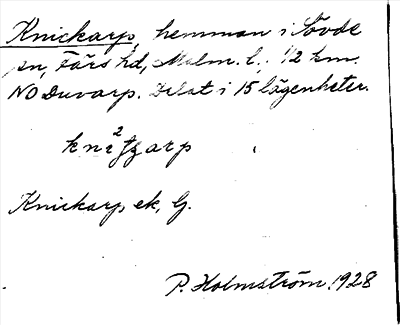 Knickarp, hemman i Sövde
sn, Färs hd, Malm. l., 1/2 km.
NO Duvarp. Delat i 15 lägenheter.
Knickarp, ek, G.
P. Holmström. 1928